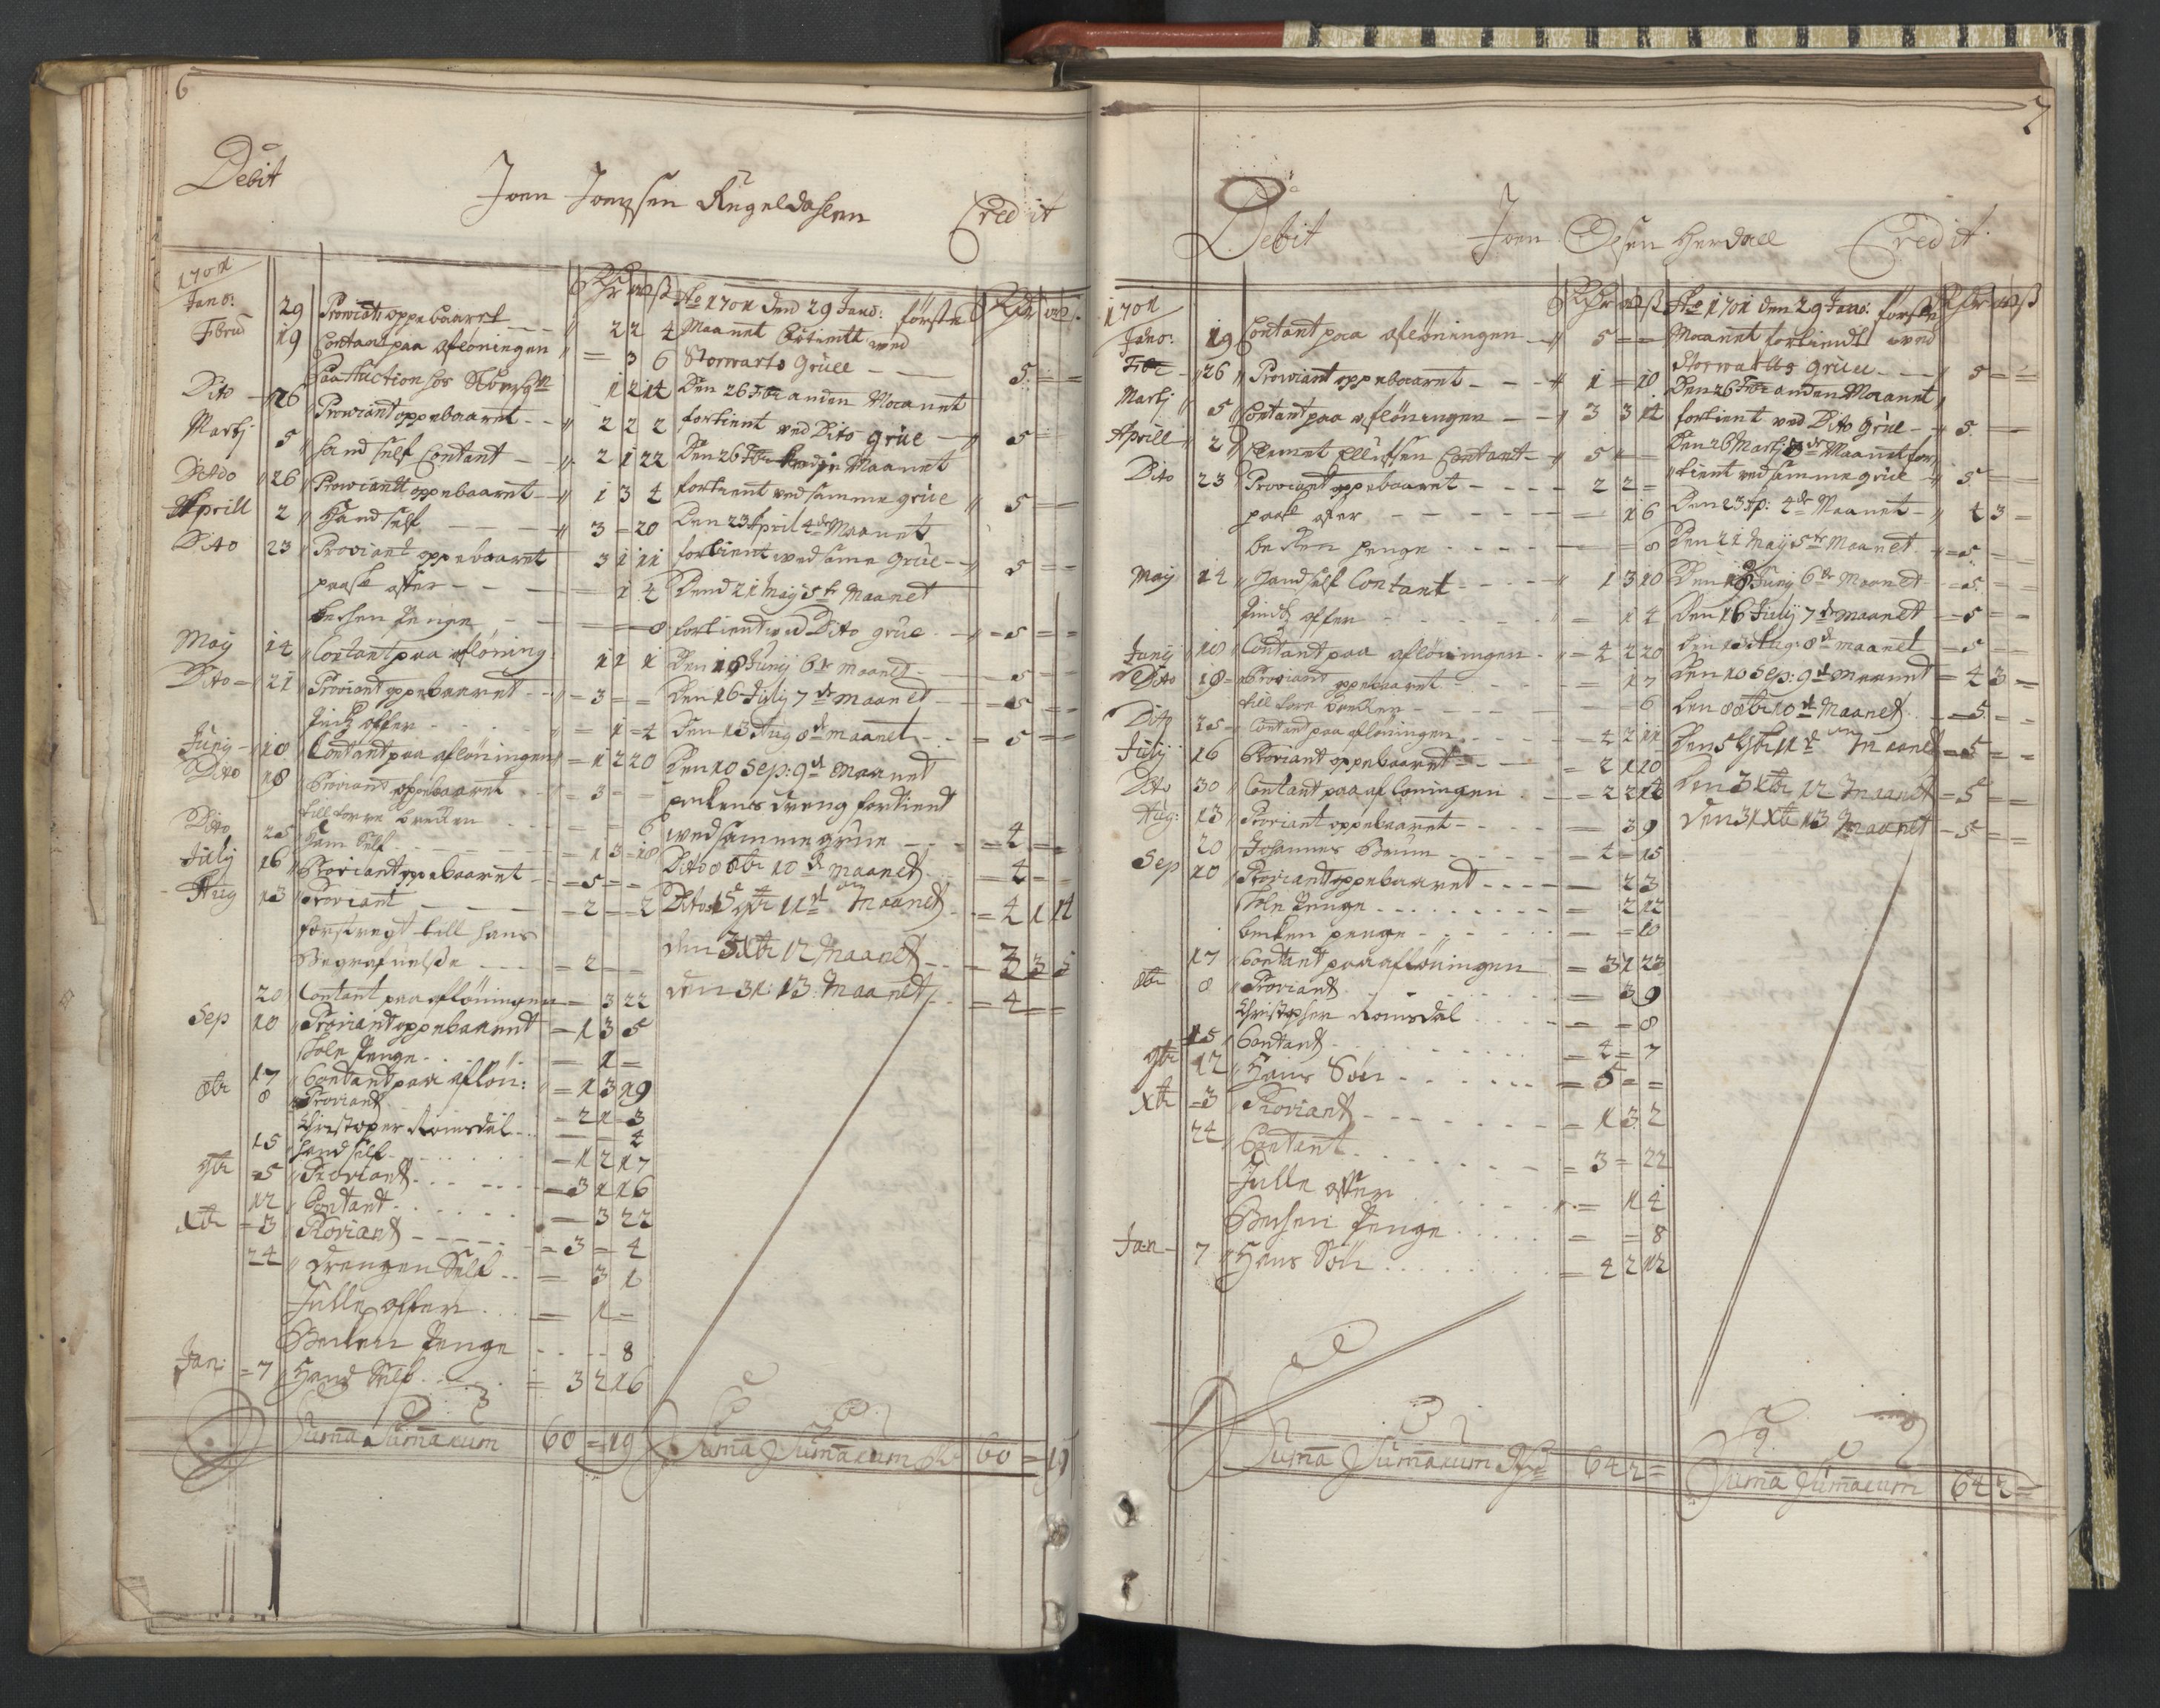 6
Debit
Joen Joensen Rugeldahlen
Credit
1701
Jano: 29 Proviant oppebaaret 2 2 4
Febru 19 Contant paa afløningen = 3 6
Paa Auction hos 1 2 14
Dito 26 Proviant oppebaaret 2 2 2
Martj 5 hand self Contant 2 1 22
Dito 26 Proviandt oppebaaret 1 3 4
Aprill 2 Hand self 3 = 20
Dito 23 Proviant oppebaaret 3 1 11
paask offer 1 4
bechen penge 8
May 14 Contant paa afløning 1 1 1
Dito 21 Proviant oppebaaret = 3 = =
Pindtz offer = 1 = 4
Junj 10 Contant paa afløningen = 1 2 20
Dito 18 Proviant oppebaaret = 3 = =
till torve brecken = = 6
Dito 25 ham self = 1 3 = 18
July 16 Proviant oppebaaret = 5 = =
Aug 13 Proviant = 2 = = 2
forstregt till hans
Begrafuelsse = 2 = =
20 Contant paa afløningen = 3 22
Sep 10 Proviant oppebaaret = 1 3 5
Skole Penge = 1 =
17 Contant paa afløn: = 1 3 19
8br 8 Proviant = 2 1 = 3
Christoper Romsdal = = 4
15 hand self = 1 2 17
9br =5 Proviant = 3 1 16
12 Contant = 3 22
Xbr =3 Proviant = 3 = 4
24 Drengen Self = 3 1
Julle offer = 1 =
Becken Penge 8
Jan: =7 Hand Self = 3 2 16
Suma Sumarum 60 = 19
Ao 1701 Den 29 Jano: første
Maanet fortient ved
Storwarts Grue 5 = =
Den 26 Febr anden Maanet
fortient ved Dito grue 5 = =
Den 26 Maanet
fortient ved samme grue 5 = =
Den 23 April 4de Maanet
fortient ved same Grue 5 = =
Dend 21 May 5te Maanet
fortient ved Dito grue = 5 = =
Den 18 Junij 6te maanet 5 = =
Den 16 Julj 7de maaned = 5 = =
Den 13 Aug 8de maanet = 5 = =
Den 10 Sep: 9de Maanet
enkens dreng fortient
ved samme grue = 4 = =
Dito 8 8br 10de maanet = 4 = =
Dito 5 9br 11te Maanet = 4 1 14
den 3 Xbr 12 Maanet = 3 3 5
den 31: 13 Maanet = 4 = =
Suma Sumarum 60 = 19
7
Debit
Joen Olsen Herdall
Credit
1701
Jano: 19 Contant paa afløningen 5 = =
Febr 26 Proviant oppebaaret 1 = 10
Martj 5 Contant paa afløningen 3 3 14
Aprill 2 Clemet Ellefsen Contant 5 = =
Dito 23 Proviant oppebaaret 2 2 =
paask offer = 1 6
becken penge = 8
May 14 Hand self Contant 1 3 10
Pindtz offer = 1 4
Junj 10 Contant paa afløningen = 4 2 20
Dito 18 Proviant oppebaaret = 1 7
till torve brecken = = 6
Dito 25 Contant paa afløningen = 4 2 11
Julij 16 Proviant oppebaaret = 2 1 10
Dito 30 Contant paa afloningen = 2 2 14
Aug: 13 Proviant oppebaaret = 3 9
20 Johannes Bruun = 4 = 15
Sep 10 Proviant oppebaaret = 2 3
Skole Penge = 2 12
becken penge = = 10
17 Contant paa afløningen = 3 1 23
8br 8 Proviant = 3 9
Christopher Romsdal = = 8
15 Contant = 4 = 7
9br 12 Hans Søn = 5 = =
Xbr =3 Proviant = 1 3 2
24 Contant = 3 = 22
Julle offer = 1 4
Becken Penge = = 8
Jan 7 Hans Søn = 4 2 12
Suma Sumarum Rdr 64 2 =
Ao 1701 Den 29 Jano: første
Maanet fortient ved
Storwartts Grue 5 = =
Den 26 Febr anden Maanet
fortient ved Dito Grue 5 = =
Den 26 Martj 3de Maanet for
tient ved samme grue 5 = =
Den 23 Ap: 4de Maanet 4 3 =
Den 21 Maij 5te Maanet = 5 = =
Den 18 Junij 6te Maanet = 5 = =
Den 16 Julij 7de maanet = 5 = =
Den 13 Aug: 8de maanet = 5 = =
Den 10 Sep: 9de Maanet = 4 3 =
Den 8 8br 10de Maanet = 5 = =
Den 5 9br 11te Maanet = 5 = =
Den 3 Xbr 12 Maanet = 5 = =
Den 31 Xbr 13 Maanet = 5 = =
Suma Sumarum 64 2 =